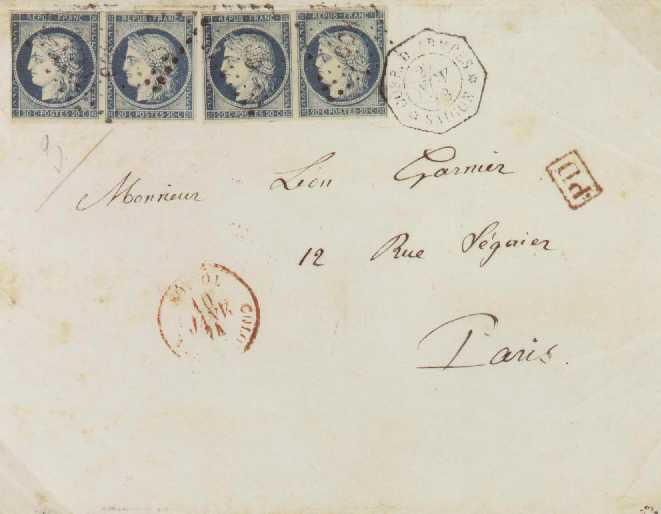 REPUB. FRANC. REPUB. FRANC. REPUB. FRANC. REPUB. FRANC.
20 C POSTES 20 C 20 C POSTES 20 C 20 C POSTES 20 C 20 C POSTES 20 C
CORR. D. ARMÉES
SAIGON
PD
Monsieur Léon Garnier
12 Rue Séguier
Paris.
10
JANV
74